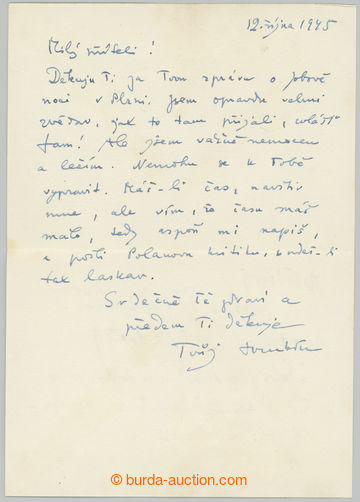 12. října 1945
Milý příteli!
Děkuju Ti za Tvou zprávu o Jobově
noci v Plzni. Jsem opravdu velmi
zvědav, jak to tam přijali, zvláště
tam! Ale jsem vážně nemocen
a léčím. Nemohu se k Tobě
vypravit. Máš-li čas, navštiv
mne, ale vím, že času máš
málo, tedy aspoň mi napiš,
a pošli Polanovu kritiku, budeš-li
tak laskav.
Srdečně Tě zdraví a
předem Ti děkuje
Tvůj
© burda-auction.com